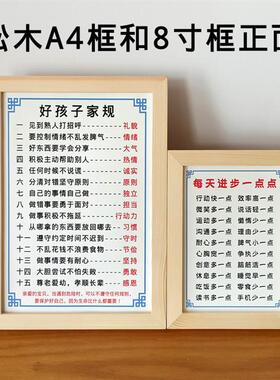 松木A4框和8寸框正面
好孩子家规
一 见到熟人打招呼---礼貌
二 要控制情绪不乱发脾气---情绪
三 好东西要学会分享---大气
四 积极主动帮助别人---热情
五 任何时候不说谎---诚实
六 分清对错坚守原则---原则
七 自己的事情自己做---独立
八 做错事要勇于面对---担当
九 做事积极不拖延---行动力
十 从哪拿的东西要放回哪去---习惯
十一 遵守约定时间不迟到---守时
十二 不打架不骂人---
十三 做事情要有耐心---坚持
十四 大胆尝试不怕失败---勇敢
十五 尊老爱幼,孝顺长辈---感恩
亲爱的宝贝,当遇到危险时,可以不遵守任何规则,
要保护好自己,因为生命比什么都重要!
每天进步一点点
行动快一点 效率高一点
微笑多一点 说话轻一点
运动多一点 懒惰少一点
沟通多一点 理由少一点
耐心多一点 脾气小一点
心胸宽一点 争执少一点
创意多一点 脑筋活一点
休息多一点 熬夜少一点
吃饭多一点 零食少一点
读书多一点 手机少一点